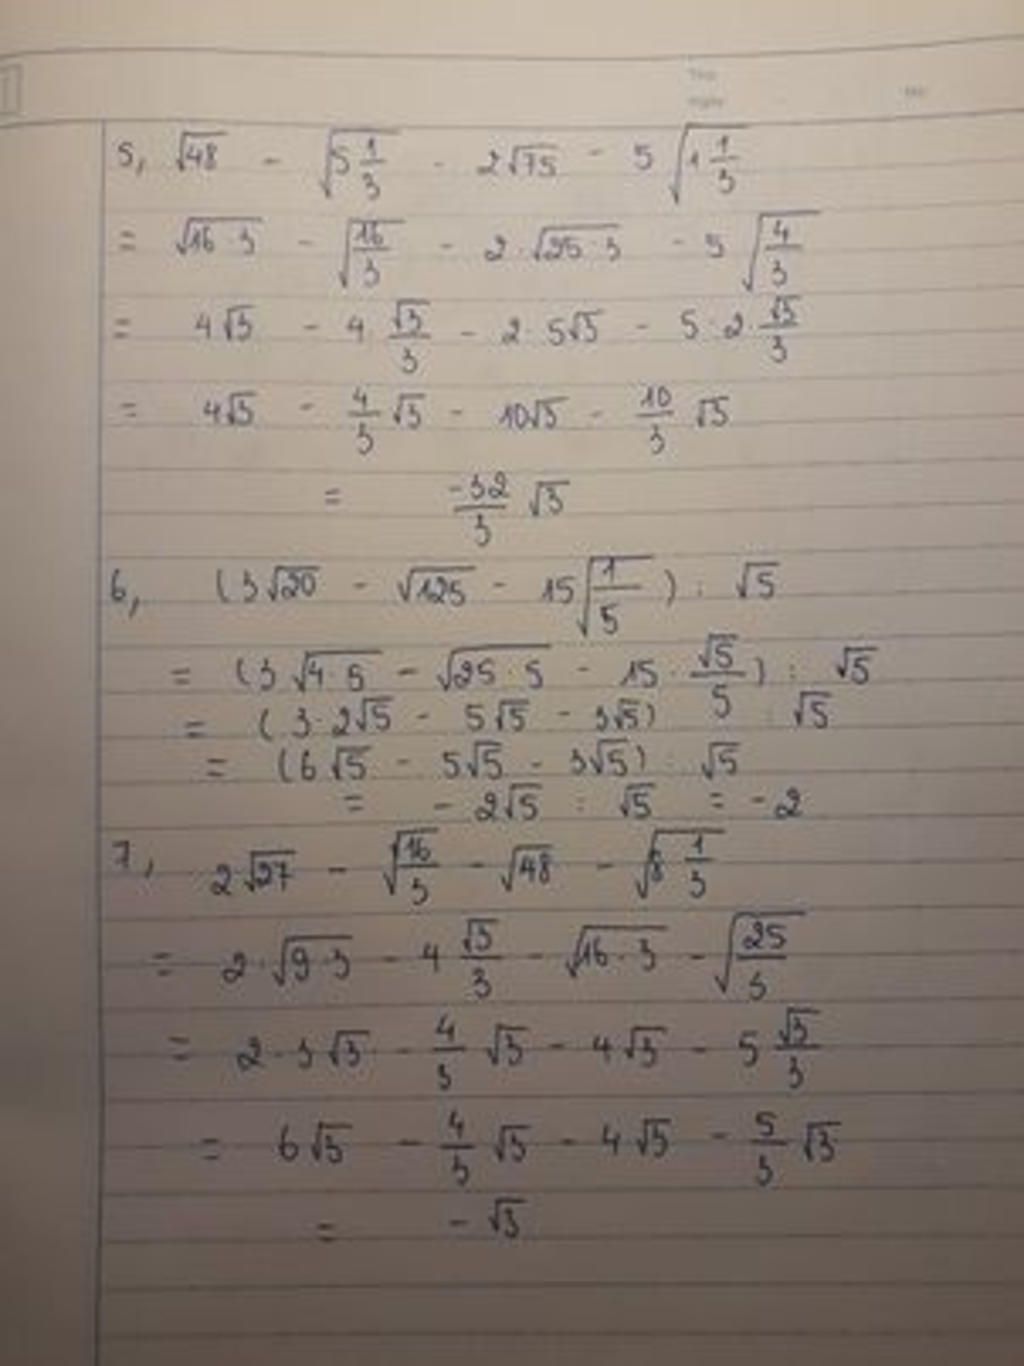 Thứ
Ngày
No.
5, √48 - √(5 1/3) - 2√75 - 5√(1 1/3)
= √(16·3) - √(16/3) - 2·√(25·3) - 5√(4/3)
= 4√3 - 4 √3/3 - 2·5√3 - 5·2·√3/3
= 4√3 - 4/3 √3 - 10√3 - 10/3 √3
= -32/3 √3
6, (3√20 - √125 - 15√(1/5)) : √5
= (3√(4·5) - √(25·5) - 15·√5/5) : √5
= (3·2√5 - 5√5 - 3√5) : √5
= (6√5 - 5√5 - 3√5) : √5
= -2√5 : √5 = -2
7, 2√27 - √(16/3) - √48 - √(8 1/3)
= 2·√(9·3) - 4 √3/3 - √(16·3) - √(25/3)
= 2·3√3 - 4/3 √3 - 4√3 - 5 √3/3
= 6√3 - 4/3 √3 - 4√3 - 5/3 √3
= -√3